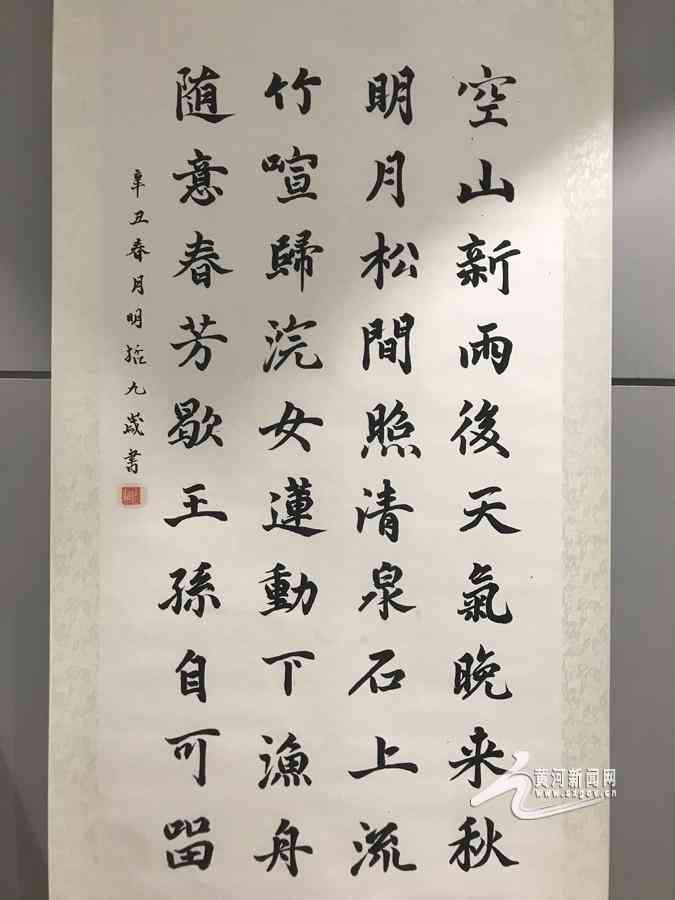 空山新雨後天氣晚来秋
明月松間照清泉石上流
竹喧歸浣女蓮動下漁舟
随意春芳歇王孫自可留
辛丑春月明括九歲書
黄河新闻网
www.sxgov.cn